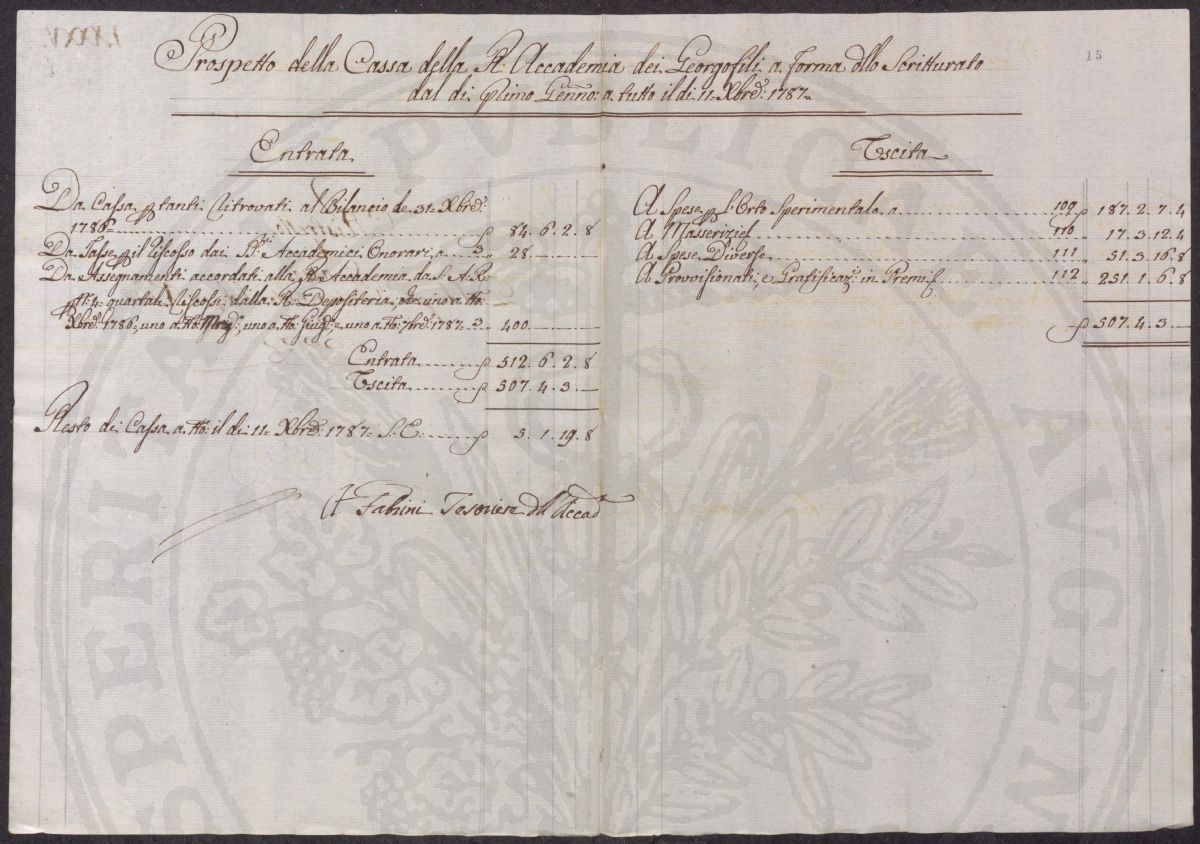 LXXXV.
15
Prospetto della Cassa della R. Accademia dei Georgofili a forma dllo Scritturato
dal dì Primo Genn.o a tutto il dì 11 Xbre: 1787
Entrata
Da Cassa p tanti ritrovati al Bilancio de 31 Xbre:
1786 84. 6. 2. 8
Da Tasse p il riscosso dai Accademici Onorari a 28. — — —
Da Assegnamenti accordati alla R. Accademia da S. A. R.
p N. 4 quartali riscossi dalla R. Depositeria, cioè uno a tto
Xbre: 1786, uno a tto Marz: uno a tto Giug: e uno a tto 7bre: 1787 400. — — —
Entrata 512. 6. 2. 8
Escita 507. 4. 3. —
Resto di Cassa a tto il dì 11 Xbre: 1787. S. E. 5. 1. 19. 8
Fabrini Tesoriere dll Accad
Escita
A Spese p l'Orto Sperimentale a 109 187. 2. 7. 4
A Masserizie 110 17. 3. 12. 4
A Spese Diverse 111 51. 3. 16. 8
A Provvisionati, e Gratificaz: in Premi 112 251. 1. 6. 8
507. 4. 3. —
SPERITATI PUBLICAE AUGEN